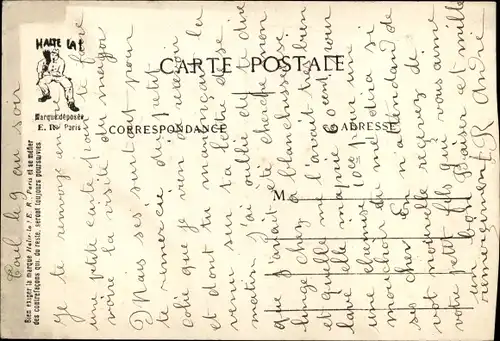 HALTE LÀ!
Marque déposée
E. R. Paris
Bien exiger la marque Halte-là! E. R. Paris et se méfier
des contrefaçons qui, du reste, seront toujours poursuivies.
CARTE POSTALE
CORRESPONDANCE
ADRESSE
M
Toul le 9 au soir
Je te renvoy en
une petite carte pour te faire
voire la visite du major
Mais ses surtout pour
te remercie du petit
colié que je vien de recevoir
et dont je manquan la
venir sur ta lettre de se
matin j'ai oublié de te dire
que j'avait été cherché mon
linge chez la blanchisseuse
et quelle me l'avait bien
lavé elle m'a prie 60 cent pour
une chemise 10 c pour un
mouchoir tu me dira si
ses cher En n'attendan de
vot nouvelle reçevez de
votre petit fils qui vous aime
un bon Baiser et mille
remerciement André